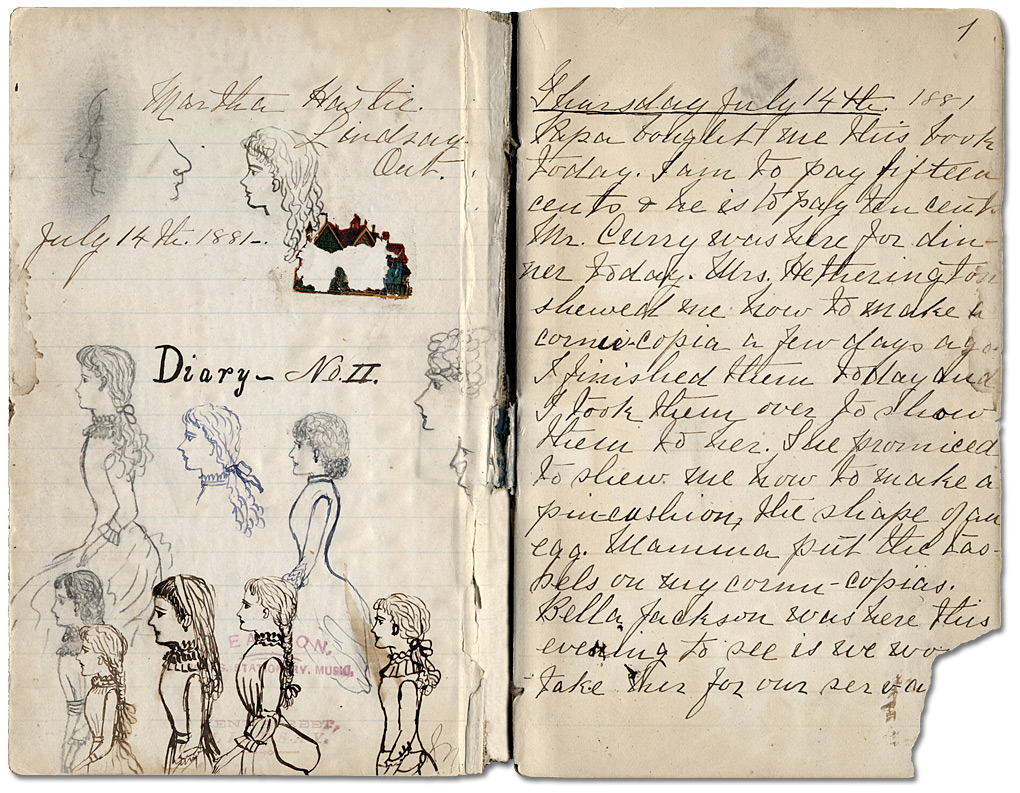 Martha Hastie.
Lindsay
Ont.
July 14th. 1881.
Diary - No. II.
STATIONERY. MUSIC,
1
Thursday July 14th. 1881
Papa bought me this book
today. I am to pay fifteen
cents & he is to pay ten cents
Mr. Curry was here for din-
ner today. Mrs. Hetherington
shewed me how to make a
cornu-copia a few days ago.
I finished them today and
I took them over to show
them to her. She promiced
to shew me how to make a
pincushion, the shape of an
egg. Mamma put the tas-
sels on my cornu-copias.
Bella Jackson was here this
evening to see is we wo
take her for our servan